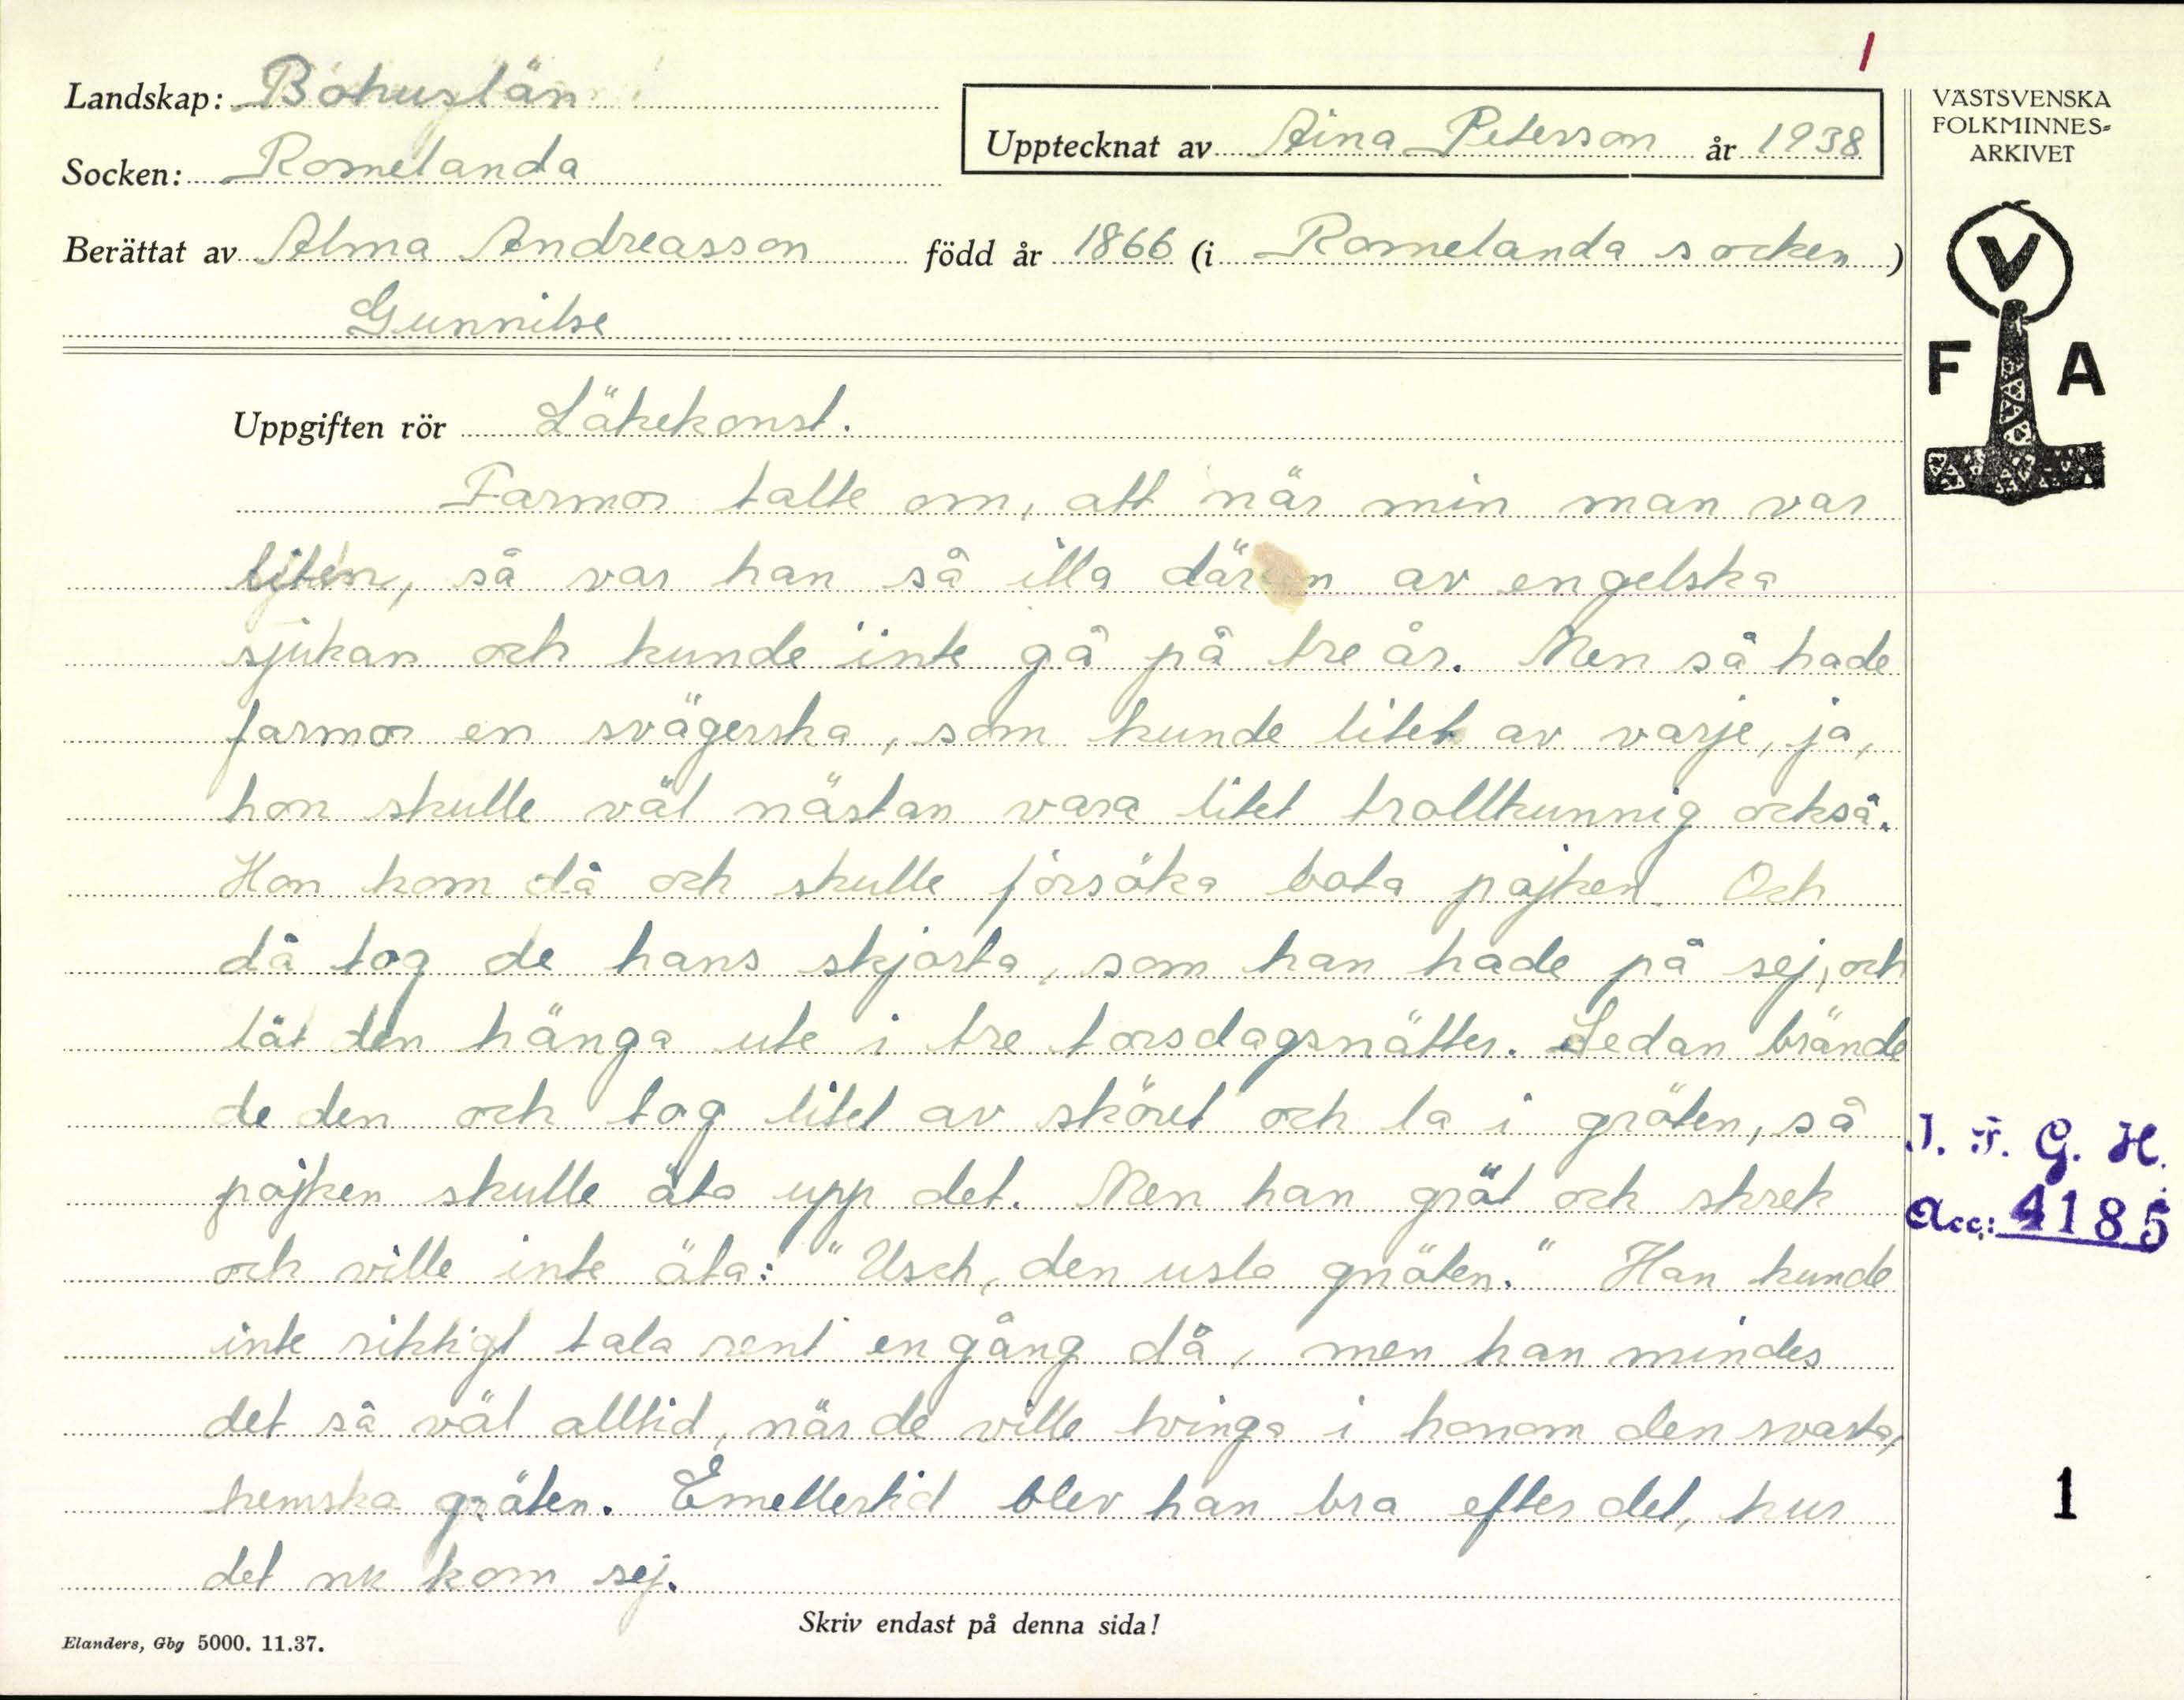 1
Landskap: Bohuslän
Uppteckn­at av Aina Peterson år 1938
Socken: Romelanda
Berättat av Alma Andreasson född år 1866 (i Romelanda socken)
Gunnilse
VÄSTSVENSKA
FOLKMINNES-
ARKIVET
V
F A
Uppgiften rör Läkekonst.
Farmor talte om, att när min man var
liten, så var han så illa dären av engelska
sjukan och kunde inte gå på tre år. Men så hade
farmor en svägerska, som kunde litet av varje, ja,
hon skulle väl nästan vara litet trollkunnig också.
Hon kom då och skulle försöka bota pojken. Och
då tog de hans skjorta, som han hade på sej, och
lät den hänga ute i tre torsdagsnätter. Sedan brände
de den och tog litet av sköret och la i gröten, så
pojken skulle äta upp det. Men han grät och skrek
och ville inte äta: "Usch, den usla gnöten." Han kunde
inte riktigt tala rent en gång då, men han mindes
det så väl alltid, när de ville tvinga i honom den svarta,
hemska gröten. Emellertid blev han bra efter det, hur
det nu kom sej.
I. F. G. H.
Acc: 4185
1
Skriv endast på denna sida!
Elanders, Gbg 5000. 11.37.